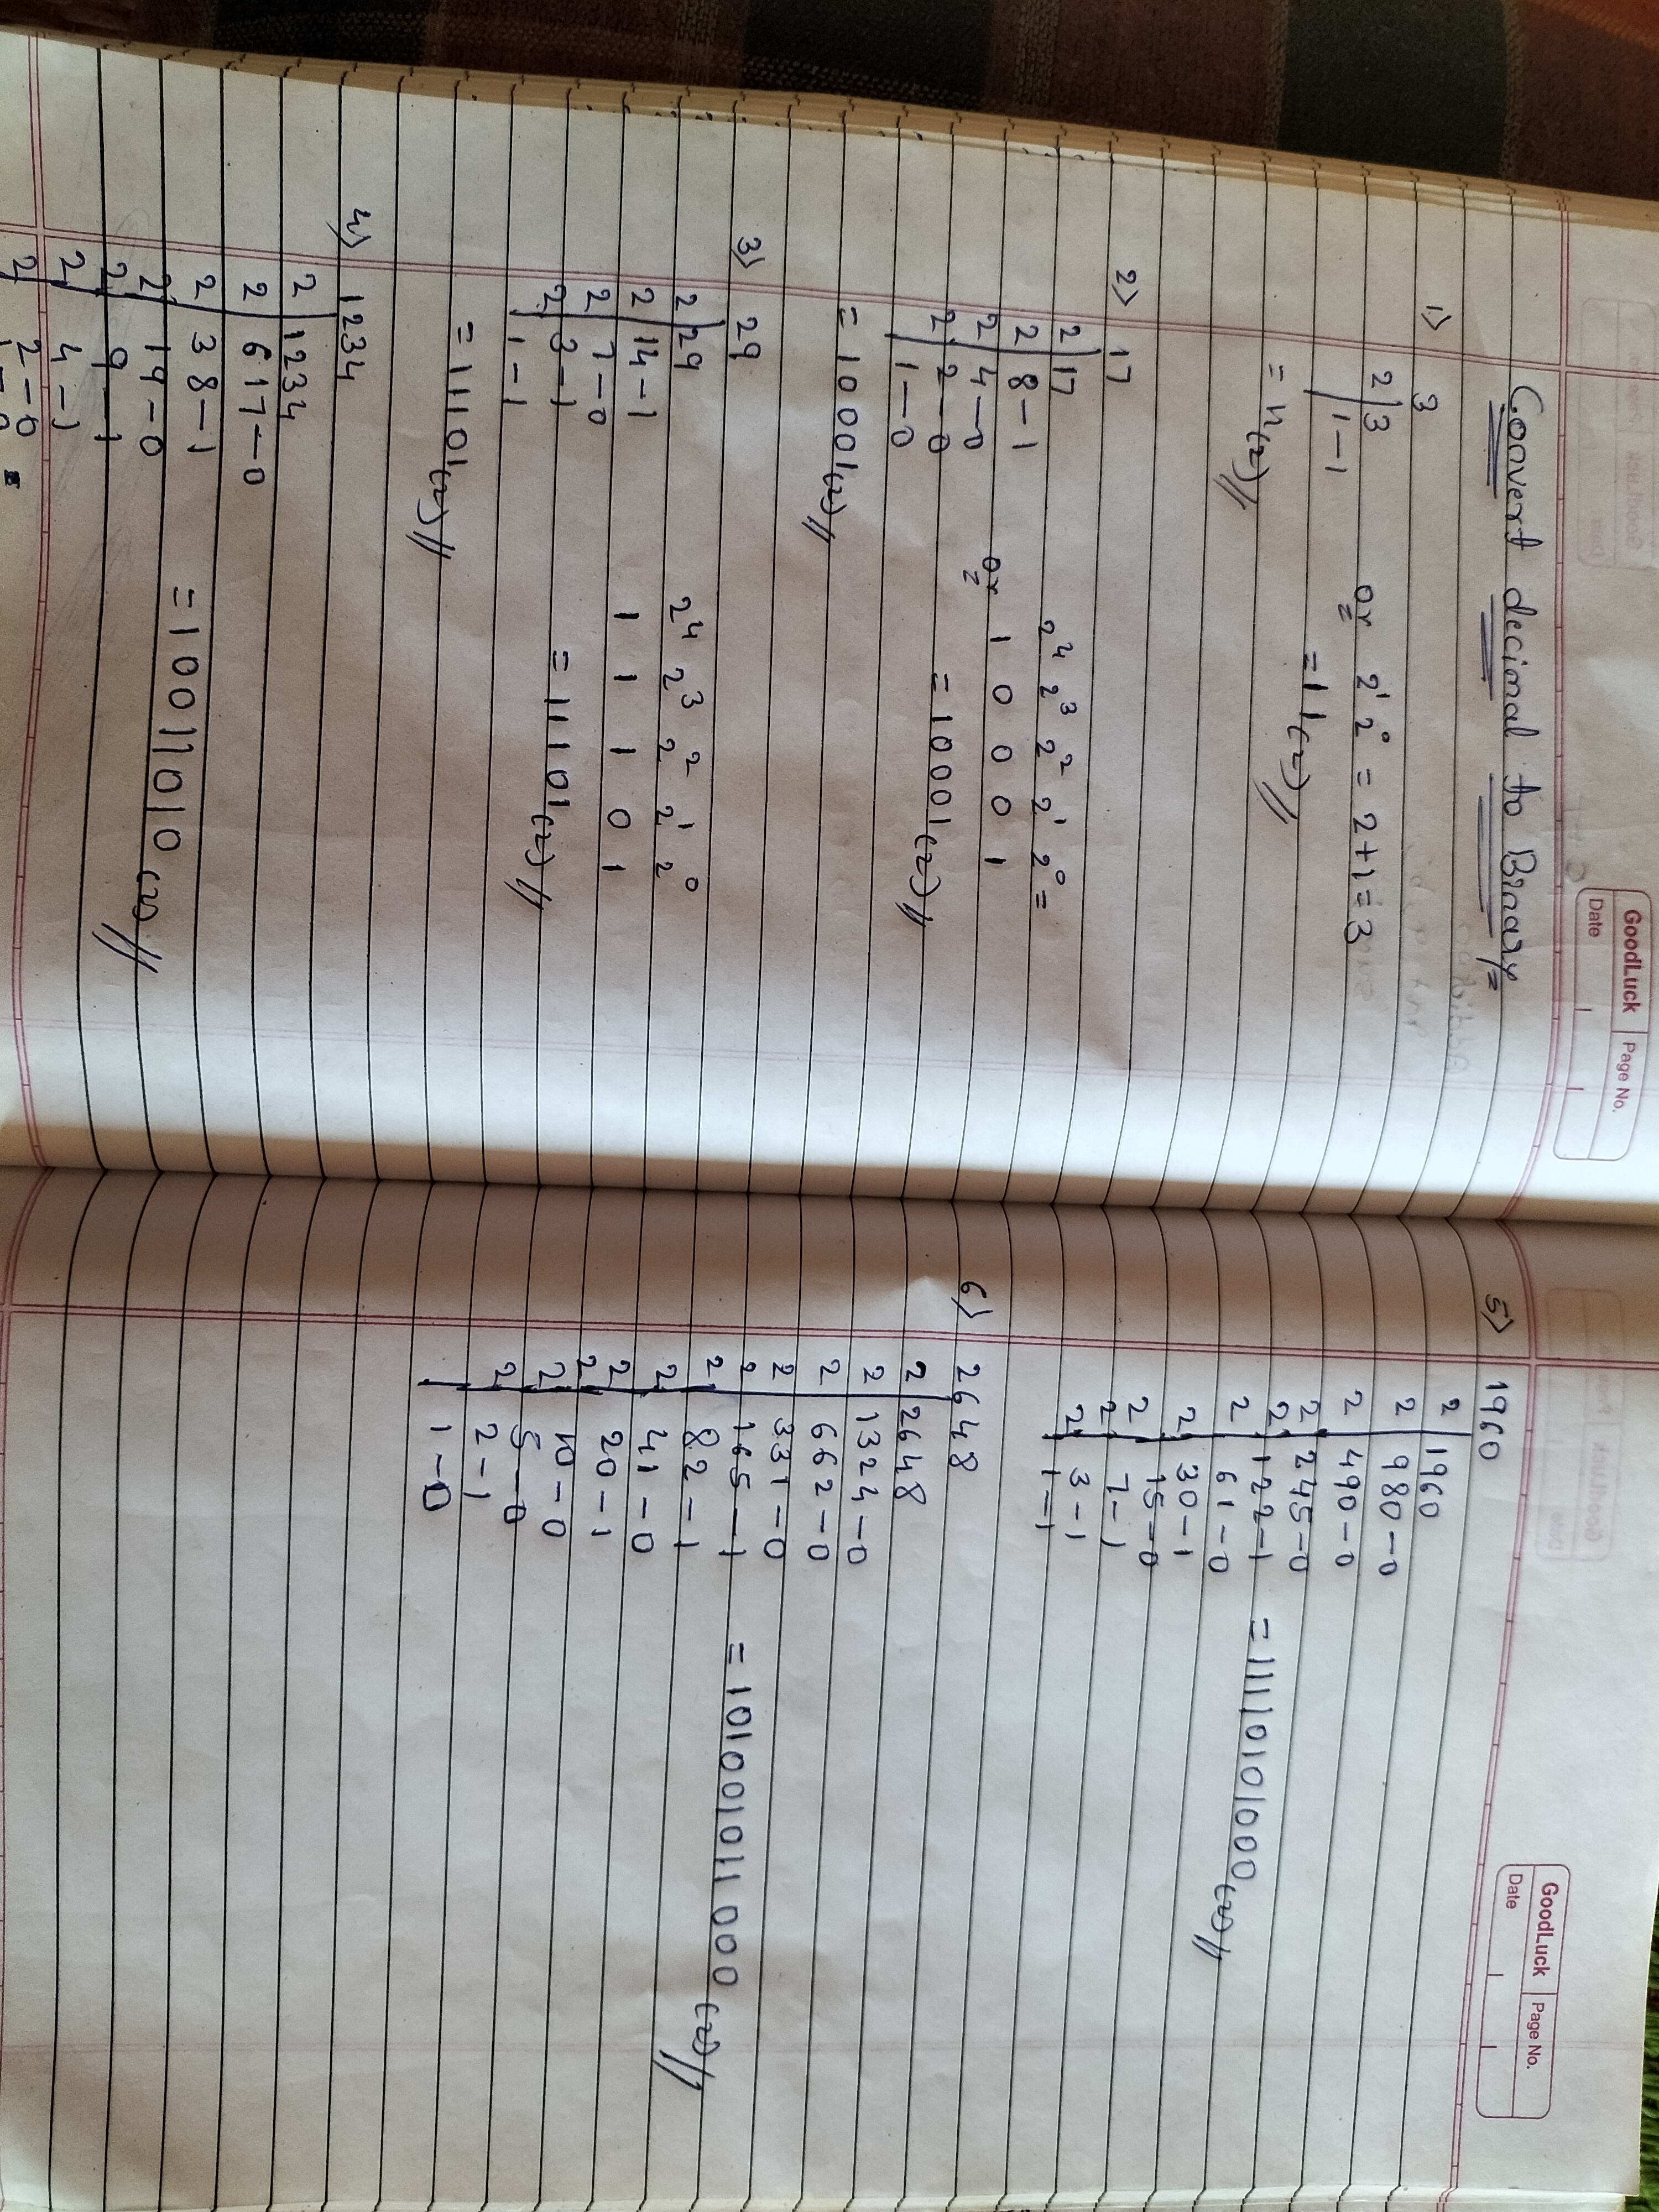 GoodLuck Page No.
Date
Convert decimal to Binary =
1) 3
2 3
1 - 1
= 11(2)//
or 2¹ 2⁰ = 2+1=3
= 11(2)//
2) 17
2 17
2 8 - 1
2 4 - 0
2 2 - 0
1 - 0
= 10001(2)//
or
2⁴ 2³ 2² 2¹ 2⁰ =
1 0 0 0 1
= 10001(2)//
3) 29
2 29
2 14 - 1
2 7 - 0
2 3 - 1
1 - 1
= 11101(2)//
2⁴ 2³ 2² 2¹ 2⁰
1 1 1 0 1
= 11101(2)//
4) 1234
2 1234
2 617 - 0
2 38 - 1
2 19 - 0
2 9 - 1
2 4 - 1
2 2 - 0
= 10011010(2)//
GoodLuck Page No.
Date
5) 1960
2 1960
2 980 - 0
2 490 - 0
2 245 - 0
2 122 - 1
2 61 - 0
2 30 - 1
2 15 - 0
2 7 - 1
2 3 - 1
1 - 1
= 11110101000(2)//
6) 2648
2 2648
2 1324 - 0
2 662 - 0
2 331 - 0
2 165 - 1
2 82 - 1
2 41 - 0
2 20 - 1
2 10 - 0
2 5 - 0
2 2 - 1
1 - 0
= 101001011000(2)//